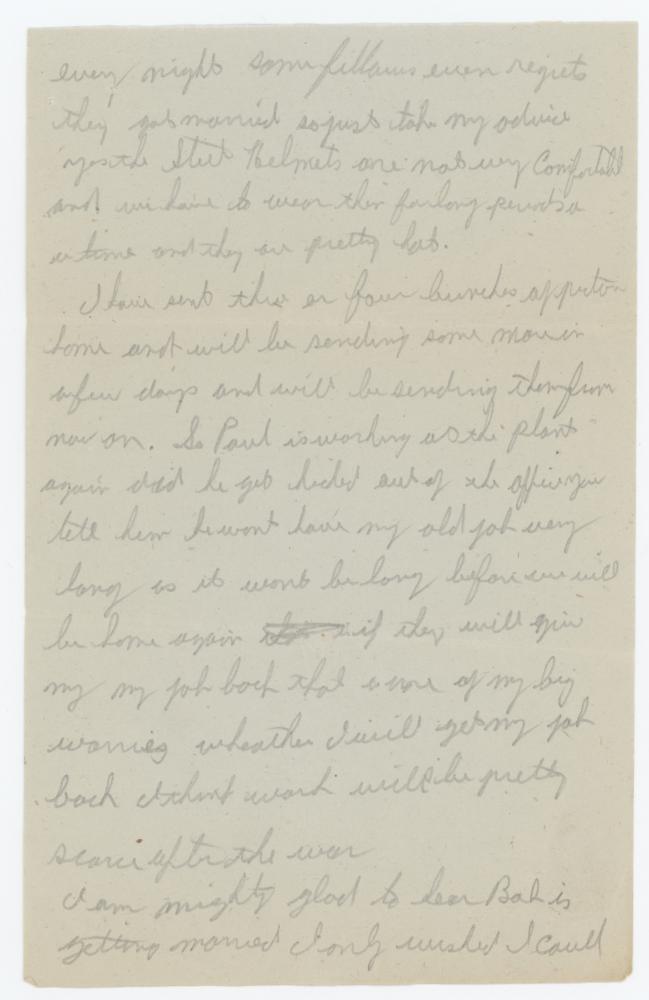 every night some fellows even regrets
they got married so just take my advice
yes the Steel Helmets are not very Comfortabl
and we have to wear them for long periods a
a time and they are pretty hot.
I have sent three or four bunches of picture
home and will be sending some more in
a few days and will be sending them from
now on. So Paul is working at the plant
again did he get kicked out of the office you
tell him he wont have my old job very
long as it wont be long before we will
be home again if they will give
my my job back that is one of my big
worries wheather I will get my job
back I think work will be pretty
scarce after the war
I am mighty glad to hear Bob is
getting married I only wished I could